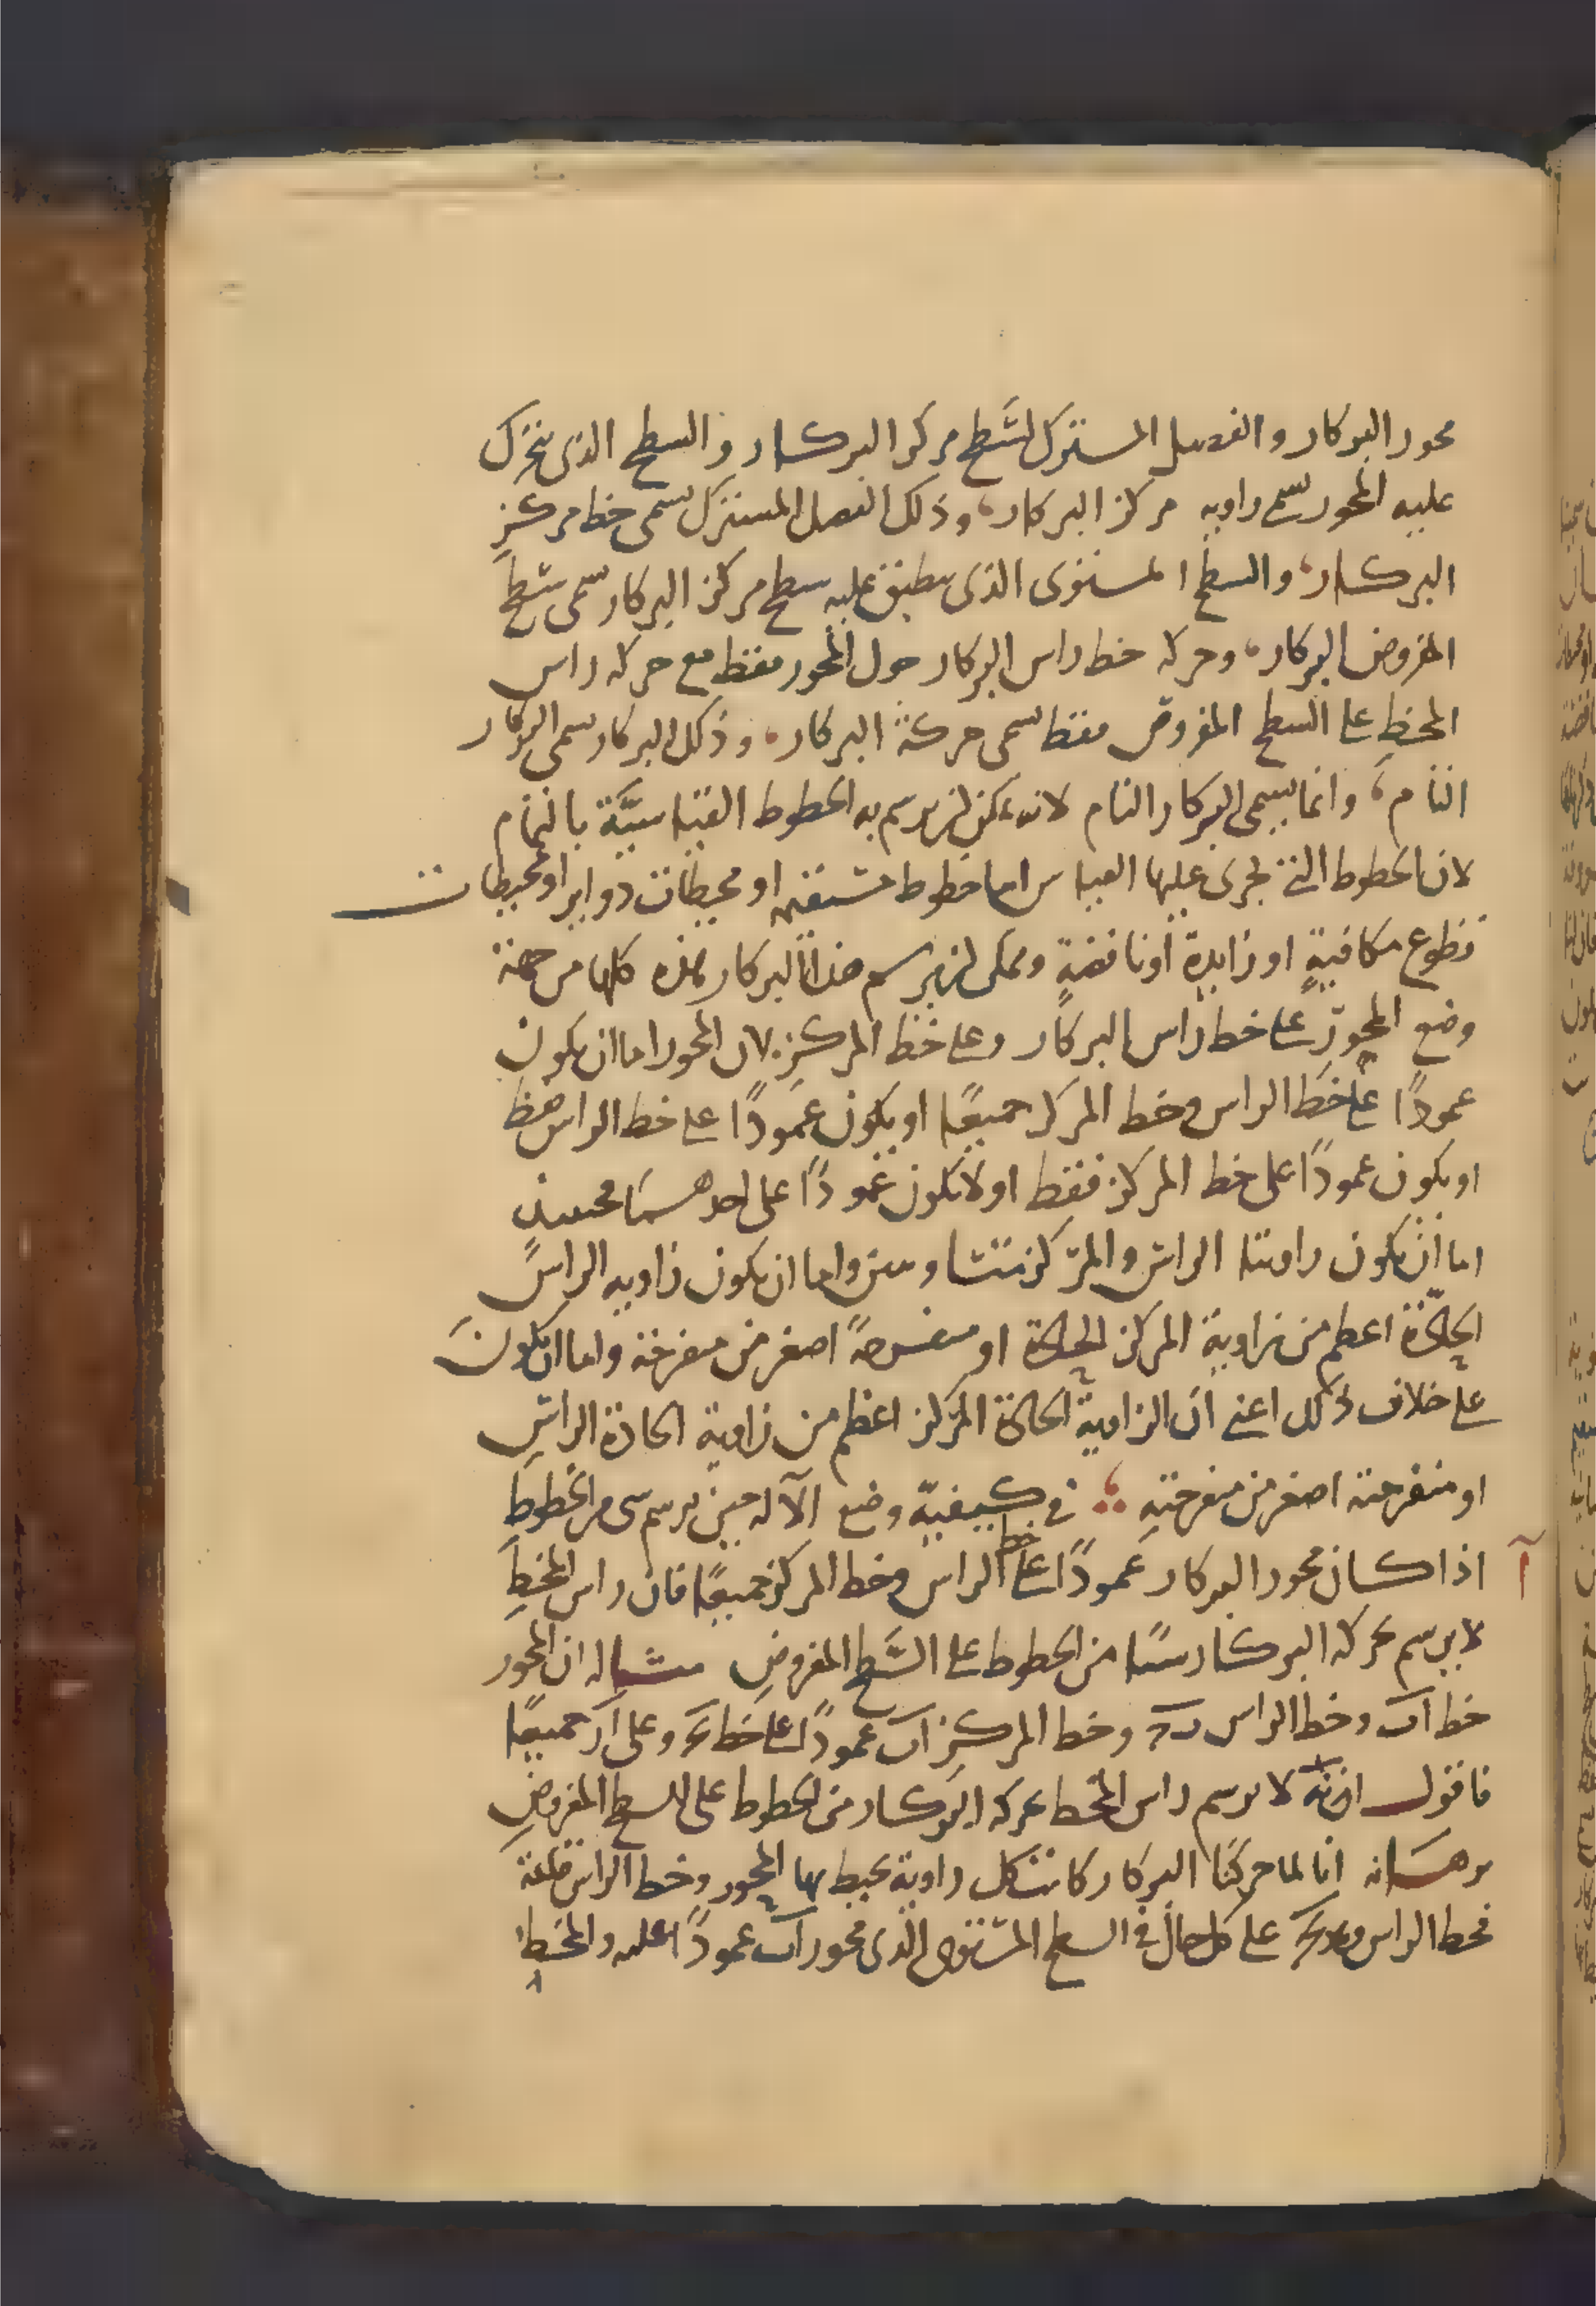 محور البركار والفصل المشترك لسطح مركز البركار والسطح الذى يتحرك
عليه المحور يسمى زاوية مركز البركار، وذلك الفصل المشترك يسمى خط مركز
البركار، والسطح المستوى الذى ينطبق عليه سطح مركز البركار يسمى سطح
المفروض البركار، وحركة خط راس البركار حول المحور فقط مع حركة راس
المخط على السطح المفروض فقط يسمى حركة البركار، وذلك البركار يسمى البركار
التام، وانما يسمى البركار التام لانه يمكن ان يرسم به الخطوط القياسيّة بالتمام
لان الخطوط التى تجرى عليها القياس اما خطوط مستقيمه او محيطات دواير او محيطات
قطوع مكافية او زايدة او ناقصة ويمكن ان يرسم هذا البركار هذه كلها من جهة
وضع المحور على خط راس البركار وعلى خط المركز لان المحور اما ان يكون
عمودًا على خط الراس وخط المركز جميعًا او يكون عمودًا على خط الراس فقط
او يكون عمودًا على خط المركز فقط او لا يكون عمودًا على احدهما فحينئذ
اما ان يكون زاويتا الراس والمركز متساويتين واما ان يكون زاويه الراس
الحادّة اعظم من زاوية المركز الحادة او منفرجة اصغر من منفرجة واما ان يكون
على خلاف ذلك اعنى ان الزاوية الحادة المركز اعظم من زاوية الحادة الراس
او منفرجته اصغر من منفرجته ؞ فى كيفيّة وضع الآله حين يرسم شى من الخطوط
آ اذا كان محور البركار عمودًا على خط الراس وخط المركز جميعًا فان راس المخط
لا يرسم بحركة البركار شيئًا من الخطوط على السطح المفروض مثاله ان المحور
خط اب وخط الراس ب‍ج وخط المركز اب عمودًا على خط وعلى اد جميعًا
فاقول انه لا يرسم راس المخط بحركه البركار من الخطوط على السطح المفروض
برهانه انا لما حركنا البركار كانت كل زاوية يحيط بها المحور وخط الراس قائمة
فخط الراس وهو على كل حال فى السطح المستوى الذى محور اب عمودًا عليه والمخط